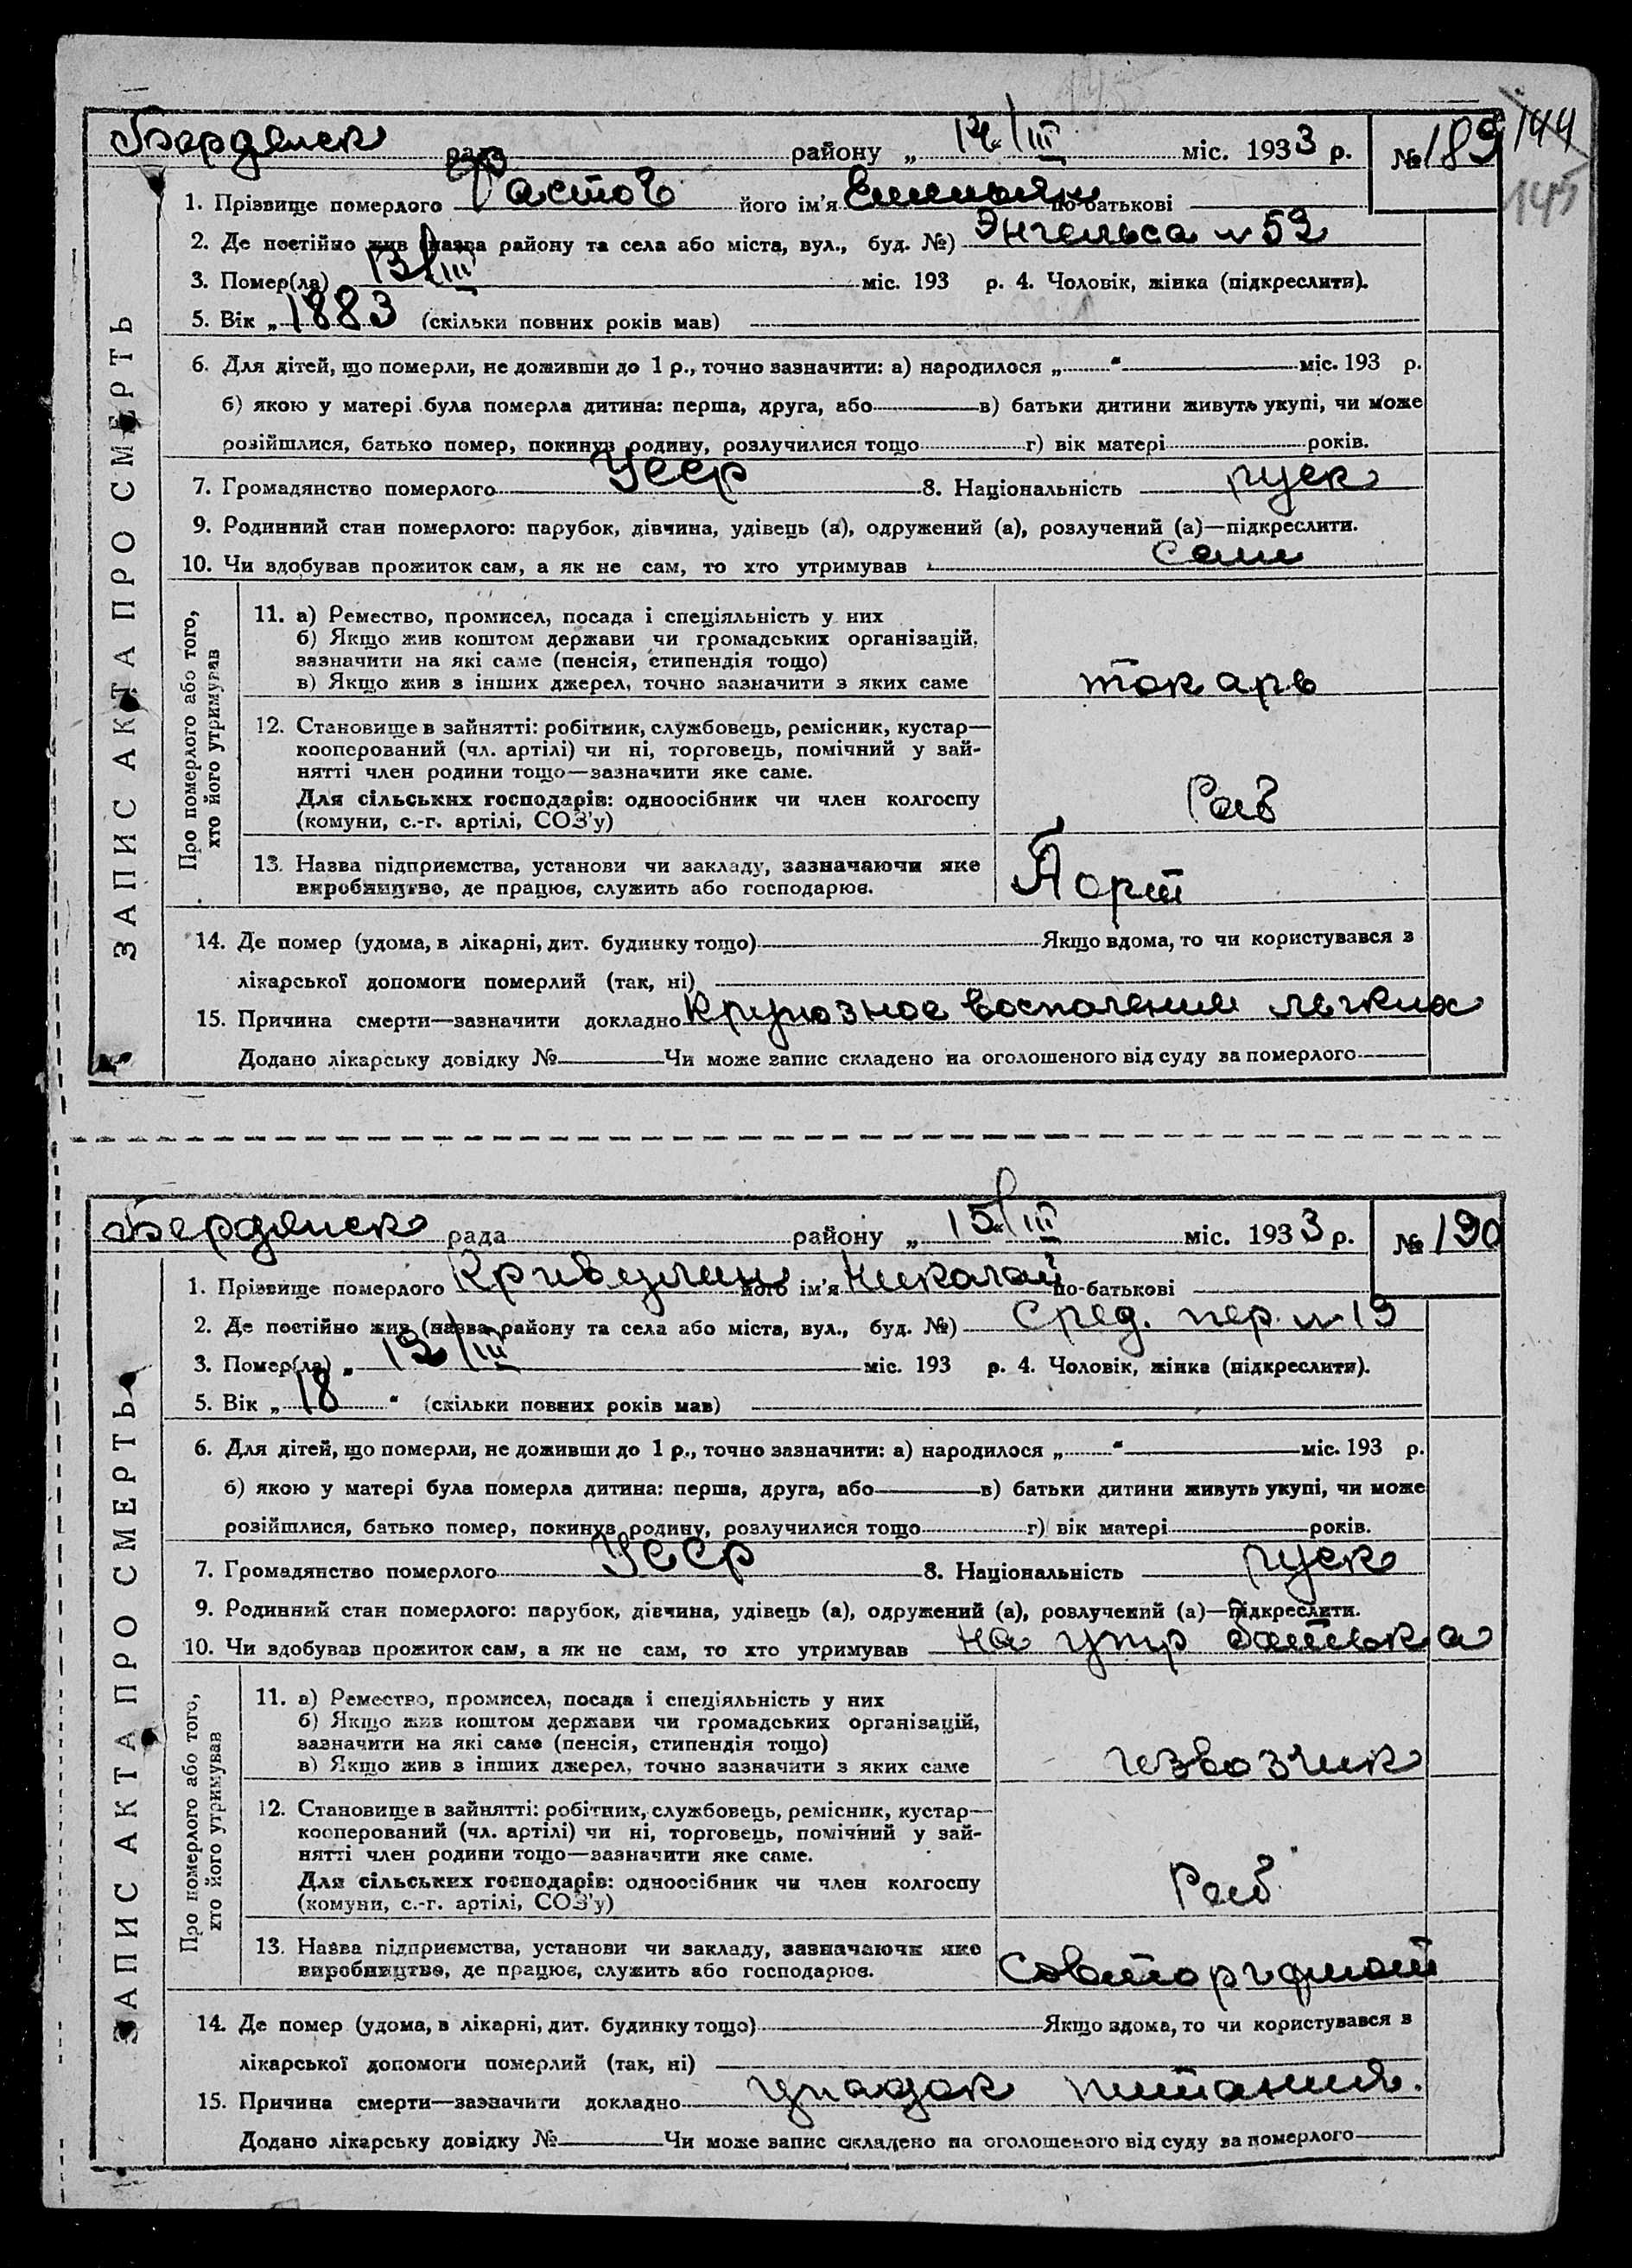 145
Бердянск рада району „ 14/III міс. 1933 р. № 189 144
145
1. Прізвище померлого Фастов його ім'я Емельян по-батькові
2. Де постійно жив (назва району та села або міста, вул., буд. №) Энгельса № 52
3. Помер(ла) 13/III міс. 193 р. 4. Чоловік, жінка (підкреслити).
5. Вік „ 1883 (скільки повних років мав)
6. Для дітей, що померли, не доживши до 1 р., точно зазначити: а) народилося „ “ міс. 193 р.
б) якою у матері була померла дитина: перша, друга, або в) батьки дитини живуть укупі, чи може
розійшлися, батько помер, покинув родину, розлучилися тощо г) вік матері років.
7. Громадянство померлого Усср 8. Національність руск
9. Родинний стан померлого: парубок, дівчина, удівець (а), одружений (а), розлучений (а)—підкреслити.
10. Чи здобував прожиток сам, а як не сам, то хто утримував сам
ЗАПИС АКТА ПРО СМЕРТЬ
Про померлого або того,
хто його утримував
11. а) Ремество, промисел, посада і спеціяльність у них
б) Якщо жив коштом держави чи громадських організацій,
зазначити на які саме (пенсія, стипендія тощо)
в) Якщо жив з інших джерел, точно зазначити з яких саме токарь
12. Становище в зайнятті: робітник, службовець, ремісник, кустар—
кооперований (чл. артілі) чи ні, торговець, помічний у зай-
нятті член родини тощо—зазначити яке саме.
Для сільських господарів: одноосібник чи член колгоспу
(комуни, с.-г. артілі, СОЗ'у) Раб
13. Назва підприємства, установи чи закладу, зазначаючи яке
виробництво, де працює, служить або господарює. Порт
14. Де помер (удома, в лікарні, дит. будинку тощо) Якщо вдома, то чи користувався з
лікарської допомоги померлий (так, ні)
15. Причина смерти—зазначити докладно Крупозное воспаление легких
Додано лікарську довідку № Чи може запис складено на оголошеного від суду за померлого
Бердянск рада району „ 15/III міс. 1933 р. № 190
1. Прізвище померлого його ім'я Николай по-батькові
2. Де постійно жив (назва району та села або міста, вул., буд. №) Сред. пер. № 19
3. Помер(ла) „ 12/III міс. 193 р. 4. Чоловік, жінка (підкреслити).
5. Вік „ 18 “ (скільки повних років мав)
6. Для дітей, що померли, не доживши до 1 р., точно зазначити: а) народилося „ “ міс. 193 р.
б) якою у матері була померла дитина: перша, друга, або в) батьки дитини живуть укупі, чи може
розійшлися, батько помер, покинув родину, розлучилися тощо г) вік матері років.
7. Громадянство померлого Усср 8. Національність руск
9. Родинний стан померлого: парубок, дівчина, удівець (а), одружений (а), розлучений (а)—підкреслити.
10. Чи здобував прожиток сам, а як не сам, то хто утримував на упр батька
ЗАПИС АКТА ПРО СМЕРТЬ
Про померлого або того,
хто його утримував
11. а) Ремество, промисел, посада і спеціяльність у них
б) Якщо жив коштом держави чи громадських організацій,
зазначити на які саме (пенсія, стипендія тощо)
в) Якщо жив з інших джерел, точно зазначити з яких саме извозчик
12. Становище в зайнятті: робітник, службовець, ремісник, кустар—
кооперований (чл. артілі) чи ні, торговець, помічний у зай-
нятті член родини тощо—зазначити яке саме.
Для сільських господарів: одноосібник чи член колгоспу
(комуни, с.-г. артілі, СОЗ'у) Раб
13. Назва підприємства, установи чи закладу, зазначаючи яке
виробництво, де працює, служить або господарює. Совторгфлот
14. Де помер (удома, в лікарні, дит. будинку тощо) Якщо вдома, то чи користувався з
лікарської допомоги померлий (так, ні)
15. Причина смерти—зазначити докладно упадок питания.
Додано лікарську довідку № Чи може запис складено на оголошеного від суду за померлого